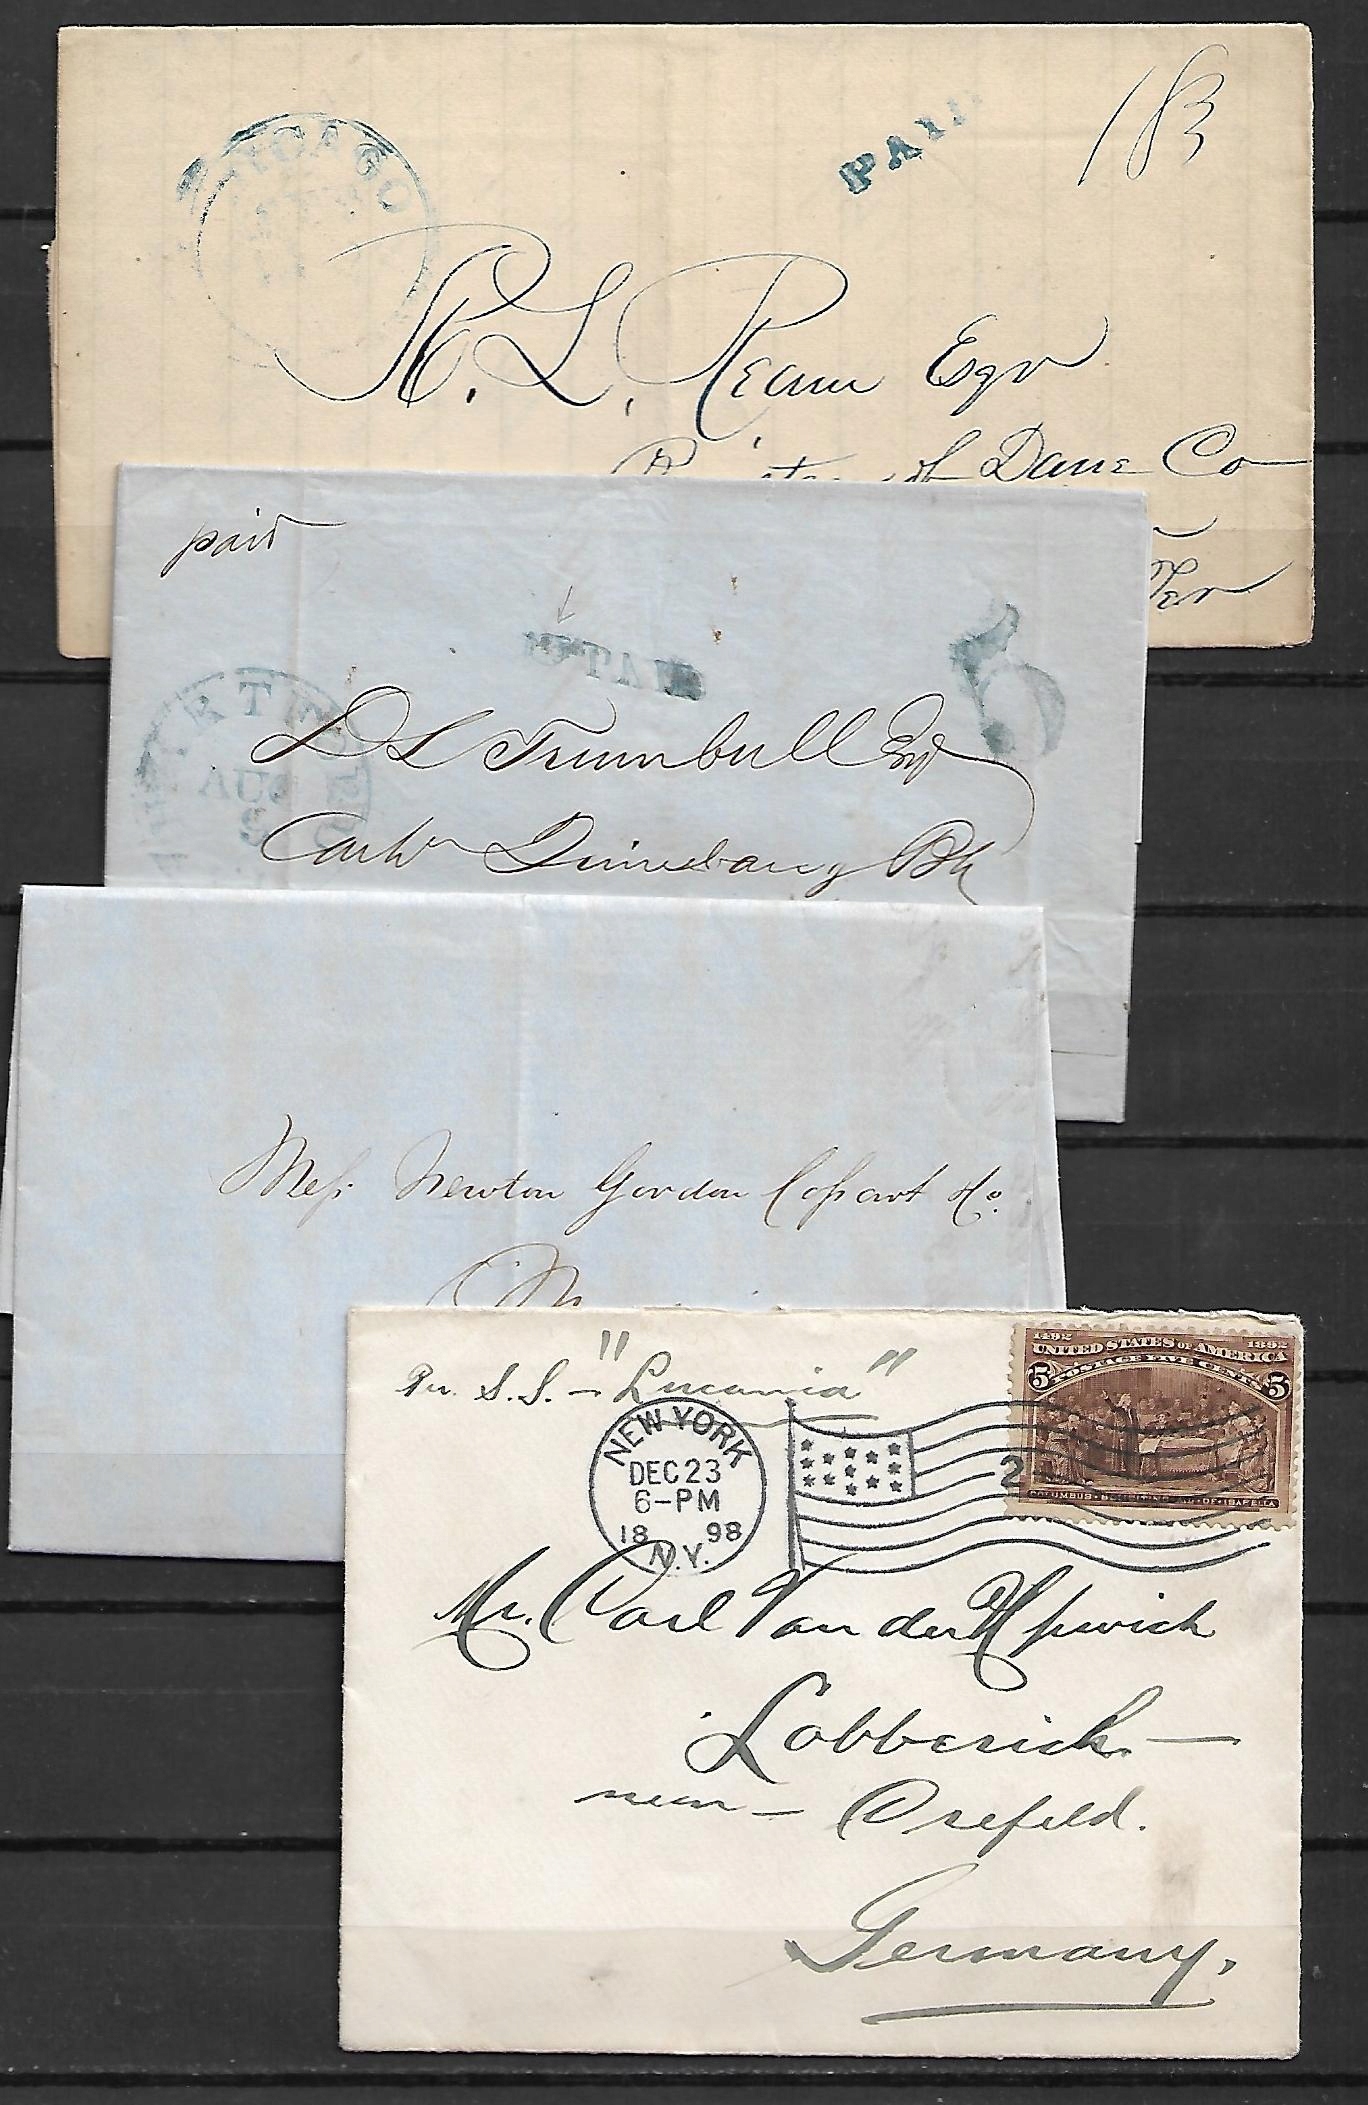 CHICAGO
PAID
18 3
R. L. Ream Esqr
of Dane Co
Ter
paid
HARTFORD
AUG
5
D L Trumbull Esq
Bk
Mess. Newton Gordon Cossart & Co.
Per S.S. - "Lucania"
NEW YORK
DEC 23
6-PM
18 98
N.Y.
2
1492 1892
UNITED STATES OF AMERICA
POSTAGE FIVE CENTS
5 5
COLUMBUS OF ISABELLA
Mr. Carl Van der Upwich
Lobberich -
near - Crefeld.
Germany.